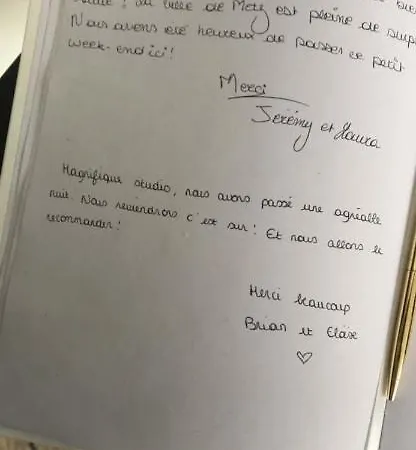 la ville de Metz est pleine de
Nous avons été heureux de passer ce petit
week-end ici!
Merci
Jérémy et Laura
Magnifique studio, nous avons passé une agréable
nuit. Nous reviendrons c'est sur! Et nous allons le
recommander!
Merci beaucoup
Brian et Elise
♡